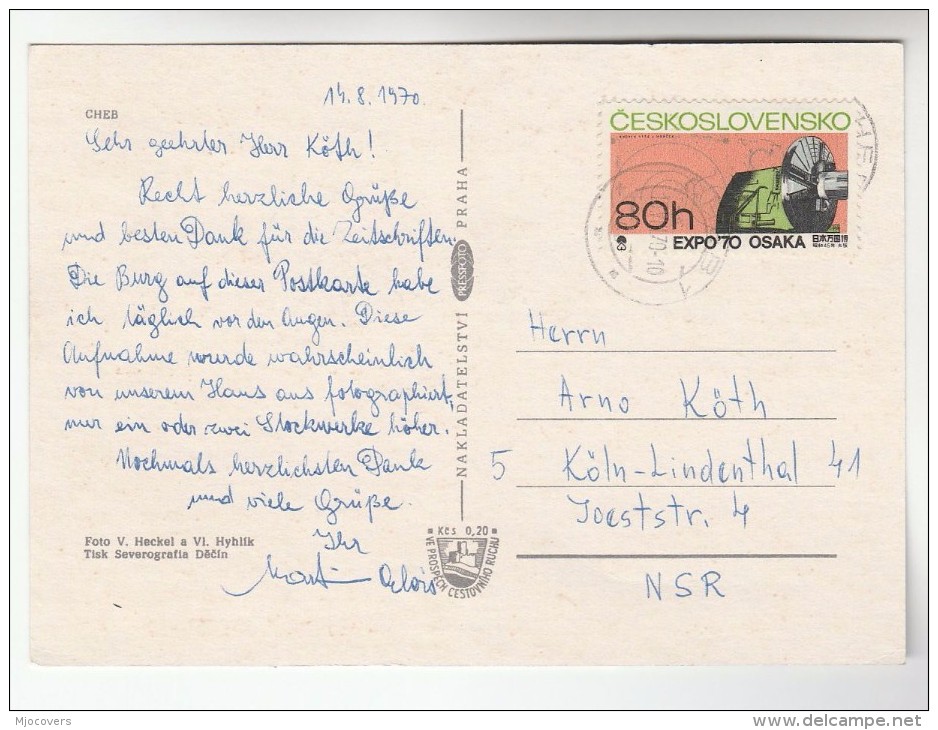 14.8.1970.
CHEB
Sehr geehrter Herr Köth!
Recht herzliche Grüße
und besten Dank für die Zeitschriften.
Die Burg auf dieser Postkarte habe
ich täglich vor den Augen. Diese
Aufnahme wurde wahrscheinlich
von unserem Haus aus fotographiert,
nur ein oder zwei Stockwerke höher.
Nochmals herzlichsten Dank
und viele Grüße.
Ihr
Foto V. Heckel a Vl. Hyhlík
Tisk Severografia Děčín
NAKLADATELSTVÍ PRESSFOTO PRAHA
Kčs 0,20
VE PROSPĚCH CESTOVNÍHO RUCHU
ČESKOSLOVENSKO
80h
EXPO'70 OSAKA 日本万国博
CHEB 1
70-10
Herrn
Arno Köth
5 Köln-Lindenthal 41
Joeststr. 4
NSR
Mjocovers
www.delcampe.net